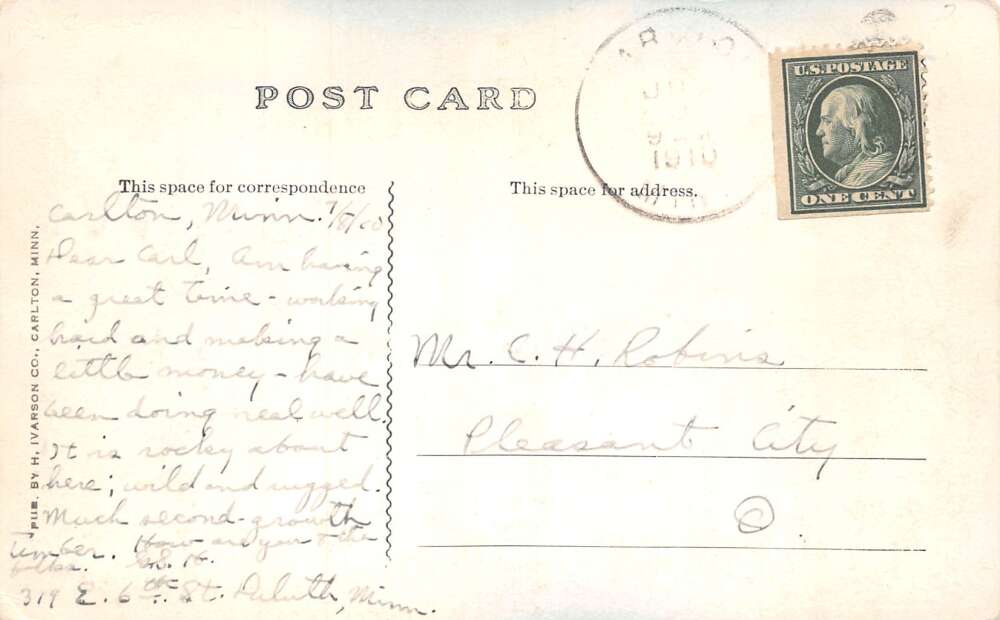 POST CARD
U.S. POSTAGE
ONE CENT
JUL
1910
This space for correspondence
This space for address.
PUB. BY H. IVARSON CO., CARLTON, MINN.
Carlton, Minn. 7/8/10
Dear Carl, Am having
a great time - working
hard and making a
little money - have
been doing real well.
It is rocky about
here; wild and rugged.
Much second-growth
timber. How are you & the
folks.
319 E. 6th St. Duluth, Minn.
Mr. C. H. Robins
Pleasant City
O.